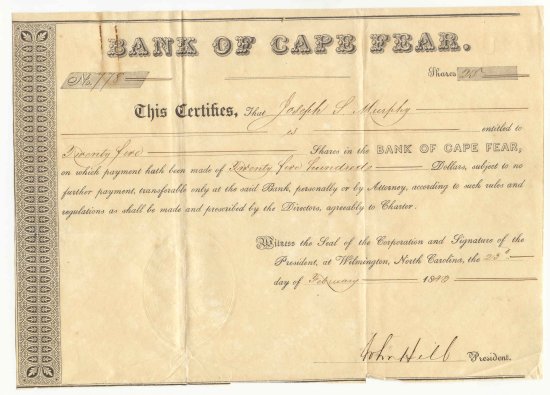 BANK OF CAPE FEAR.
No. 778
Shares 25
This Certifies, That Joseph S. Murphy
is entitled to
Twenty five Shares in the BANK OF CAPE FEAR,
on which payment hath been made of Twenty five hundred Dollars, subject to no
further payment, transferable only at the said Bank, personally or by Attorney, according to such rules and
regulations as shall be made and prescribed by the Directors, agreeably to Charter.
Witness the Seal of the Corporation and Signature of the
President, at Wilmington, North Carolina, the 23d
day of February
John Hill President.